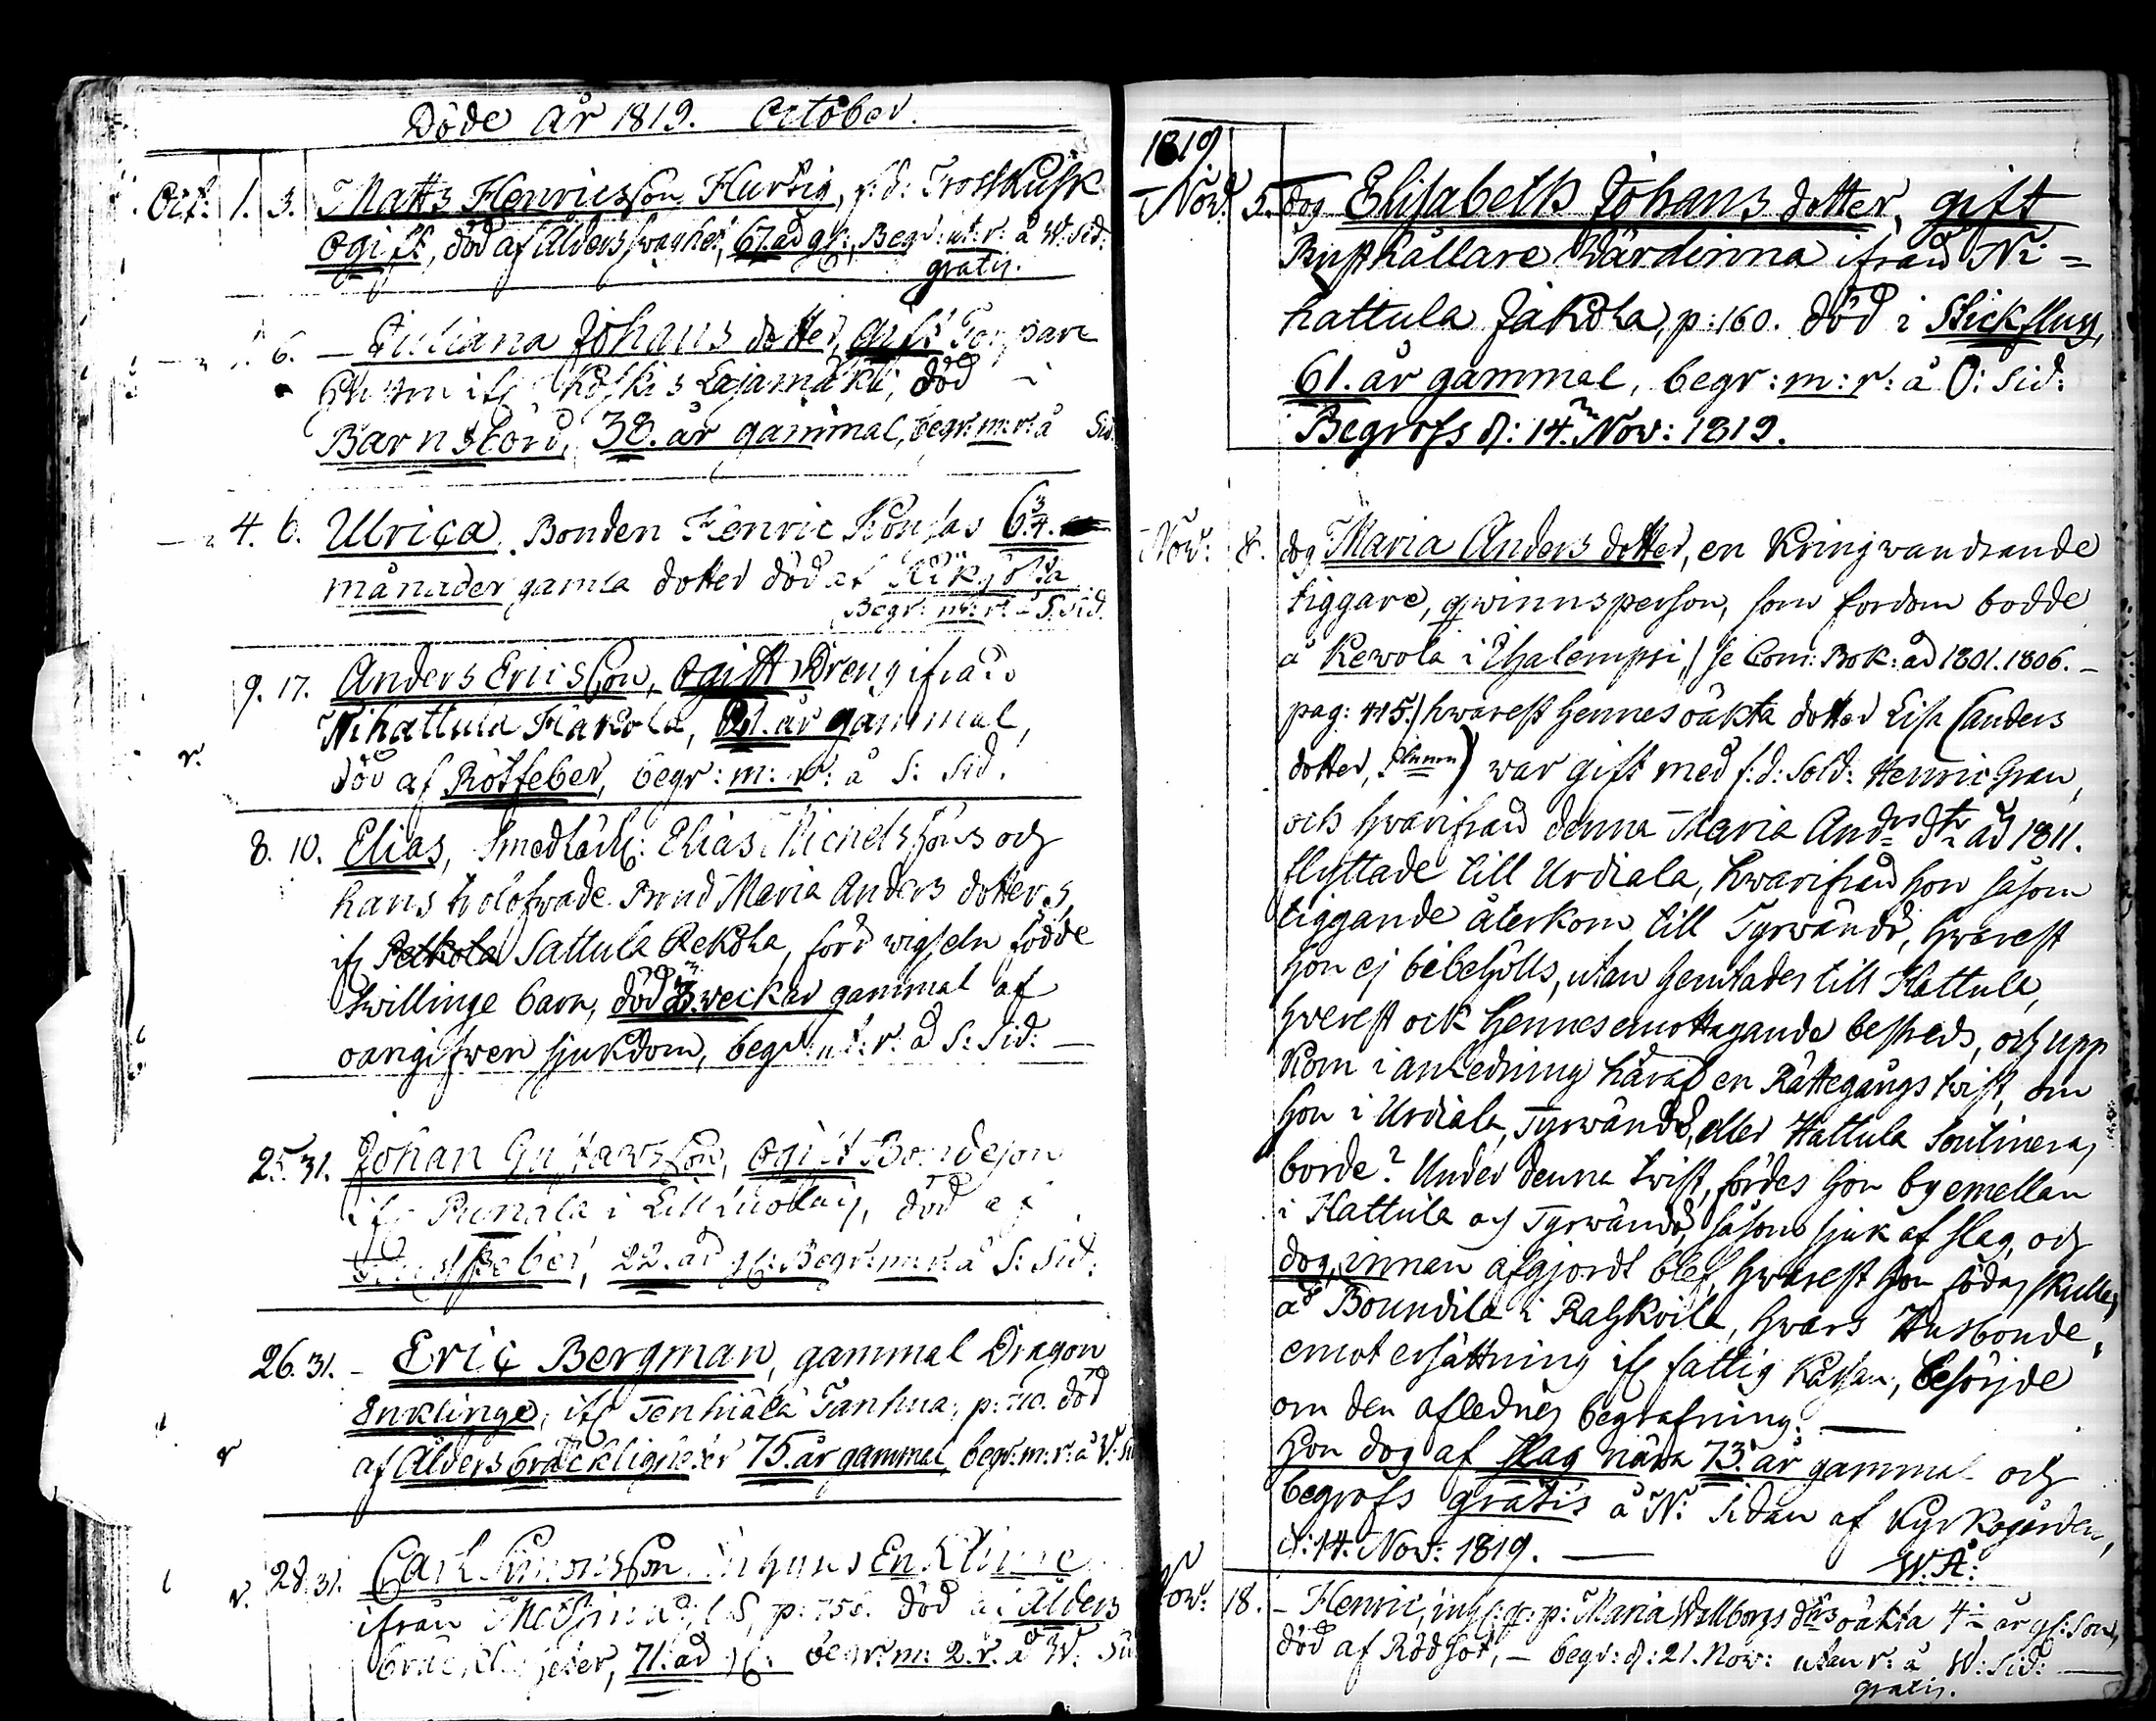 Döde År 1819. October.
Oct. 1. 3. Matts Henricsson Hurtig, f: d: Trosskusk
ogift, död af Ålders swaghet, 67. år gl:, Begr: ut: r: å W: Sid:
gratis.
6. Juliana Johans dotter, gift Torpare
i Lejamäki, död i
Barnsbörd, 38. år gammal, begr: m: r: å Sid:
4. 6. Ulrica, Bonden Henric 6 3/4.
månader gamla dotter död af
Begr: m: r: å S: Sid.
9. 17. Anders Ericsson, ogift Dreng ifrån
Nihattula Hakola, 21. år gammal,
död af Rötfeber, begr: m: r: å S: Sid.
8. 10. Elias, Smedlärl: Elias Michelssons och
hans trolofwade Brud Maria Anders dotters,
ifr Sattula Rekola, förr wigseln födde
twillinge barn, död 3. weckor gammal af
oangifwen sjukdom, begr: ut: r: å S: Sid:
25. 31. Johan Gustawsson, ogift Bondeson
ifr i död af
feber, 22. år gl: Begr: m: r: å S: Sid:
26. 31. - Eric Bergman, gammal Dragon
Enklinge, ifr Tenhiälä Tanhua, p: död
af Ålders bräckligheter 75. år gammal, begr: m: r: å
28. 31. Carl Simonsson Inhyses Enklinge
ifrån p: död af Ålders
bräckligheter, 71. år gl: begr: m: 2. r: å W: Sid
1819
Nov: 5. dog Elisabeth Johans dotter, gift
Rusthållare Wärdinna ifrån Ni=
hattula Jakola, p: 160. död i Stickflug,
61. år gammal, begr: m: r: å O: Sid:
Begrofs d: 14. Nov: 1819.
Nov: 8. dog Maria Anders dotter, en Kringwandrande
tiggare, qwinnsperson, som fordom bodde
å Kewola i Ihalempsi, / se Com: Bok: åd 1801. 1806. -
pag: 415. / hwarest hennes oäkta dotter Lisa (anders
dotter, ) war gift med f: d: Sold: Henric Gran,
och hwarifrån denna Maria Andrs dtr åd 1811.
flyttade till Urdiala, hwarifrån hon såsom
tiggande återkom till Tyrwändö, hwarest
hon ej bibehölls, utan hemtades till Hattula,
hwarest ock hennes emottagande bestreds, och upp
kom i anledning häraf en Rättegångs twist, om
hon i Urdiala, Tyrwändö, eller Hattula Soutinera,
borde? Under denna twist, fördes hon byemellan
i Hattula och Tyrwändö, såsom sjuk af slag, och
dog, innan afgjordt blef, hwarest hon födas skulle,
å Boundila i Rahkoila, hwars Husbonde,
emot ersättning ifr fattig Kassan, besörjde
om den aflednes begrafning.
Hon dog af slag nära 73. år gammal och
begrofs gratis å N: Sidan af Kyrkogården,
d: 14. Nov: 1819.
W. Å:
Nov: 18. - Henric, inhs: q: p: Maria Wallborgs dtrs oäkta 4 år gl: Son,
död af Rödsot, - begr: d: 21. Nov: utan r: å W: Sid:
gratis.